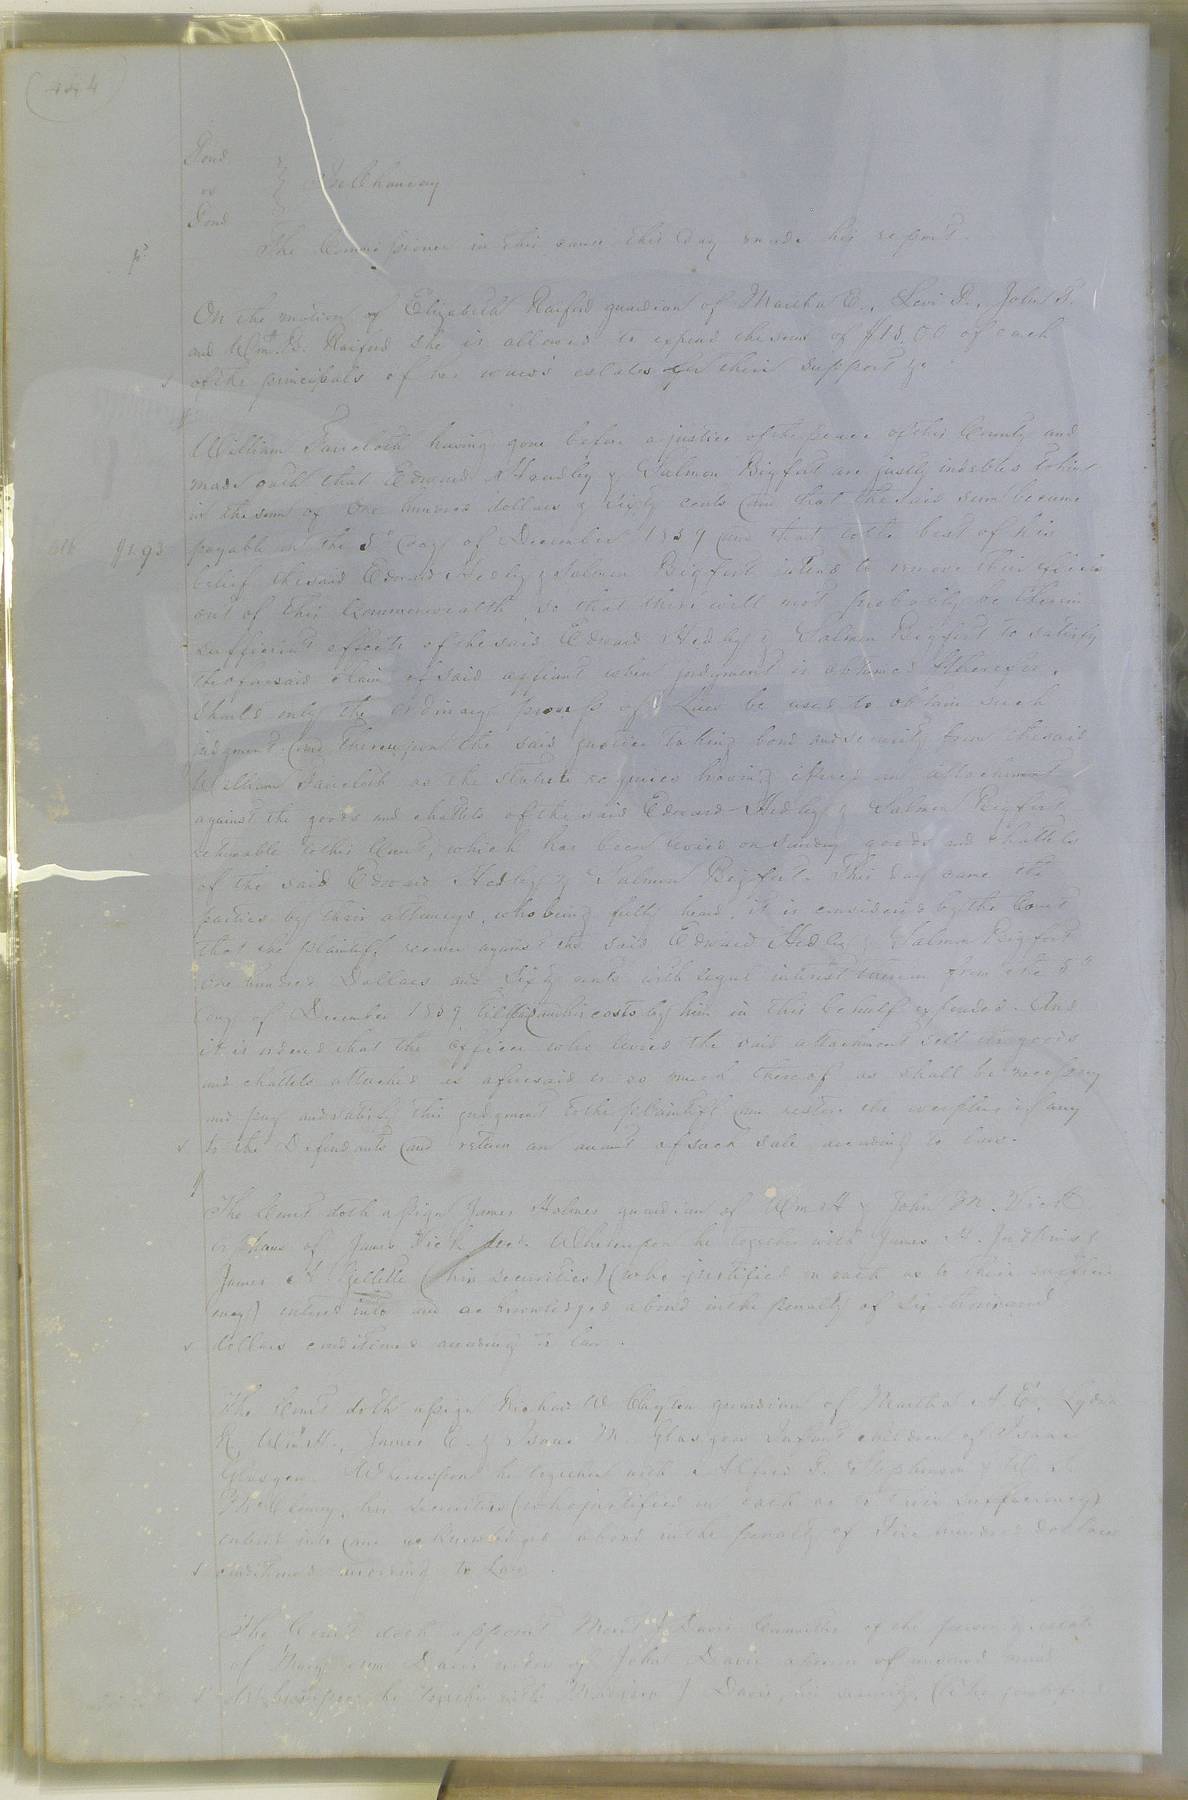 (444
Pond
vs
Pond
In Chancery
The Commissioner in this cause this day made his report.
On the motion of Elizabeth Raiford guardian of Martha E., Levi R., John T.
and Wm. B. Raiford she is allowed to expend the sum of $15.00 of each
of the principals of her ward's estates for their support &c
William Faircloth having gone before a justice of the peace of this County and
made oath that Edward Headley & Salmon Bigfort are justly indebted to him
in the sum of One hundred dollars & sixty cents and that the said sum became
payable on the 5th day of December 1859 and that to the best of his
belief the said Edward Hedley & Salmon Bigfort intend to remove their effects
out of this Commonwealth, so that there will not probably be therein
sufficient effects of the said Edward Hedley & Salmon Bigfort to satisfy
the aforesaid claim of said affiant when judgment is obtained therefor,
should only the ordinary process of Law be used to obtain such
judgment. and thereupon the said justice taking bond and security from the said
William Faircloth as the statute requires having issued an attachment
against the goods and chattels of the said Edward Hedley & Salmon Bigfort
returnable to this Court, which has been levied on sundry goods and chattels
of the said Edward Hedley & Salmon Bigfort. This day came the
parties by their attorneys, who being fully heard, it is considered by the Court
that the plaintiff recover against the said Edward Hedley & Salmon Bigfort
one hundred Dollars and sixty cents with legal interest thereon from the 5th
day of December 1859 till paid and his costs by him in this behalf expended. And
it is ordered that the officer who levied the said attachment sell the goods
and chattels attached as aforesaid or so much thereof as shall be necessary
and pay and satisfy this judgment to the plaintiff and restore the overplus if any
to the Defendants and return an account of such sale according to law.
The Court doth assign James Holmes guardian of Wm H & John M. Vick
orphans of James Vick decd. Whereupon he together with James H. Judkins &
James A Gillette (his securities) (who justified on oath as to their sufficie
ency) entered into and acknowledged a bond in the penalty of six thousand
dollars conditioned according to law.
The Court doth assign Richard W Clayton guardian of Martha A. E., Lydia
R, Wm H., James E. & Isaac M. Glasgow Infant children of Isaac
Glasgow. Whereupon he together with Alfred T. Stephenson &
his securities (who justified on oath as to their sufficiency)
entered into and acknowledged a bond in the penalty of Five hundred dollars
conditioned according to Law.
The Court doth appoint J Davis Committee of the person & estate
of Mary Davis widow of John Davis a person of unsound mind
Whereupon he together with J Davis, his security, (who justified